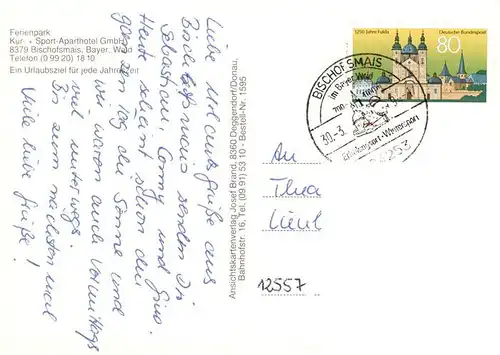 Ferienpark
Kur- + Sport-Aparthotel GmbH
8379 Bischofsmais, Bayer. Wald
Telefon (0 99 20) 18 10
Ein Urlaubsziel für jede Jahreszeit
Liebe Urlaubsgrüße aus
Bischofsmais senden Dir
Sebastian, Conny und
Heute scheint schon den
ganzen Tag die Sonne und
wir waren auch Vormittags
viel unterwegs.
Bis zum nächsten mal
Viele liebe Grüße!
Ansichtskartenverlag Josef Brand, 8360 Deggendorf/Donau,
Bahnhofstr. 16, Tel. (09 91) 53 10 - Bestell-Nr. 1595
1250 Jahre Fulda
Deutsche Bundespost
80
BISCHOFSMAIS
im Bayer. Wald
700-
30.-3.
Erholungsort-Wintersport
An
12557